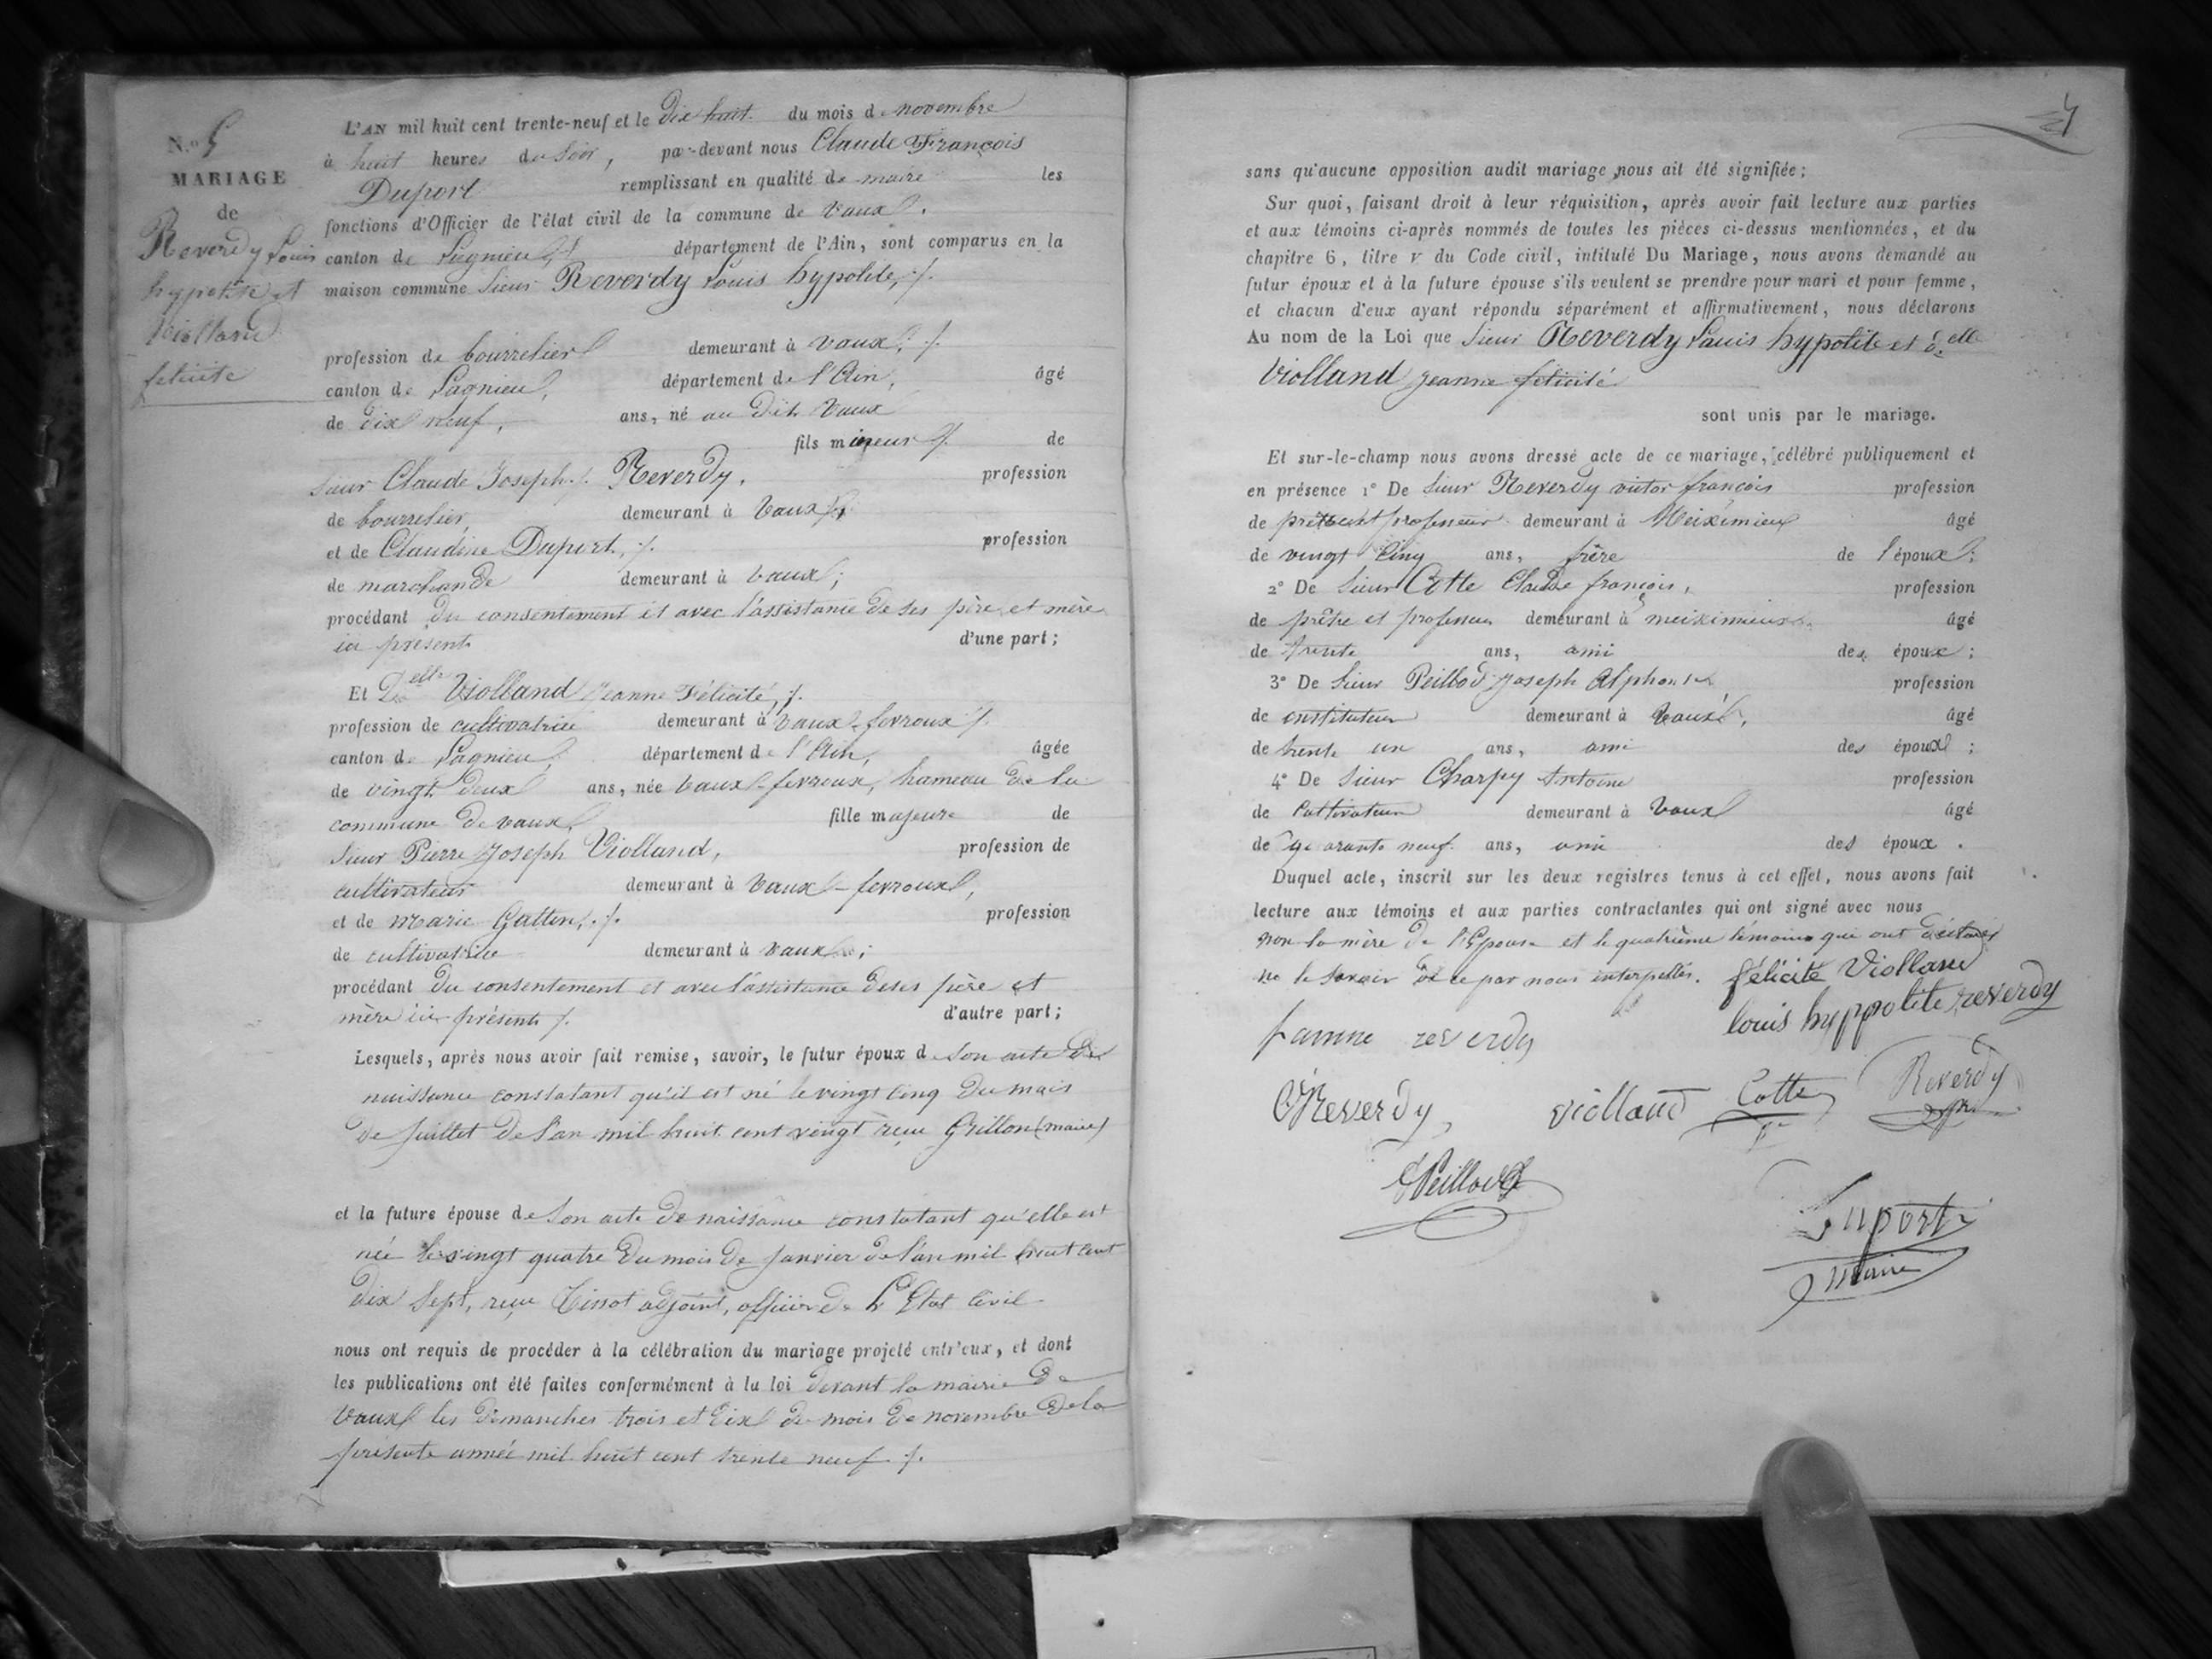 N.o 5
MARIAGE
de
Reverdy Louis
hypolite et
Violland
felicite
L'AN mil huit cent trente-neuf et le dix huit du mois de novembre
à huit heures du soir, par-devant nous Claude François
Duport remplissant en qualité de maire les
fonctions d'Officier de l'état civil de la commune de Vaux.
canton de Lagnieu, département de l'Ain, sont comparus en la
maison commune Sieur Reverdy Louis hypolite, ./.
profession de bourrelier demeurant à Vaux, ./.
canton de Lagnieu, département de l'Ain, âgé
de dix neuf, ans, né au dit Vaux
fils mineur ./. de
Sieur Claude Joseph Reverdy, profession
de bourrelier, demeurant à Vaux
et de Claudine Duport, ./. profession
de marchande demeurant à Vaux;
procédant du consentement et avec l'assistance de ses père et mère
ici présents d'une part;
Et Delle Violland Jeanne Félicité, ./.
profession de cultivatrice demeurant à Vaux-fevroux ./.
canton de Lagnieu, département de l'Ain, âgée
de vingt deux ans, née Vaux-fevroux, hameau de la
commune de vaux, fille majeure de
Sieur Pierre Joseph Violland, profession de
cultivateur demeurant à Vaux-fevroux,
et de Marie Gatten, ./. profession
de cultivatrice demeurant à Vaux;
procédant du consentement et avec l'assistance de ses père et
mère ici présents ./. d'autre part;
Lesquels, après nous avoir fait remise, savoir, le futur époux de son acte de
naissance constatant qu'il est né le vingt cinq du mois
de juillet de l'an mil huit cent vingt reçu Grillon (maire)
et la future épouse de son acte de naissance constatant qu'elle est
née le vingt quatre du mois de janvier de l'an mil huit cent
dix sept, reçu Tissot adjoint, officier de l'Etat Civil
nous ont requis de procéder à la célébration du mariage projeté entr'eux, et dont
les publications ont été faites conformément à la loi devant la mairie de
Vaux les dimanches trois et dix du mois de novembre de la
présente année mil huit cent trente neuf ./.
sans qu'aucune opposition audit mariage nous ait été signifiée;
Sur quoi, faisant droit à leur réquisition, après avoir fait lecture aux parties
et aux témoins ci-après nommés de toutes les pièces ci-dessus mentionnées, et du
chapitre 6, titre V du Code civil, intitulé Du Mariage, nous avons demandé au
futur époux et à la future épouse s'ils veulent se prendre pour mari et pour femme,
et chacun d'eux ayant répondu séparément et affirmativement, nous déclarons
Au nom de la Loi que Sieur Reverdy Louis hypolite et delle
Violland Jeanne félicité
sont unis par le mariage.
Et sur-le-champ nous avons dressé acte de ce mariage, célébré publiquement et
en présence 1° De Sieur Reverdy victor françois profession
de professeur demeurant à Meiximieux âgé
de vingt cinq ans, frère de l'époux;
2° De Sieur Cotte Claude françois, profession
de prêtre et professeur demeurant à meiximieux âgé
de trente ans, ami des époux;
3° De Sieur Peillod Joseph Alphonse profession
de instituteur demeurant à Vaux, âgé
de trente un ans, ami des époux;
4° De Sieur Charpy Antoine profession
de Cultivateur demeurant à Vaux âgé
de quarante neuf ans, ami des époux.
Duquel acte, inscrit sur les deux registres tenus à cet effet, nous avons fait
lecture aux témoins et aux parties contractantes qui ont signé avec nous
non la mère de l'Epouse et le quatrième témoins qui ont déclaré
ne le savoir de ce par nous interpellés. félicité Violland
louis hyppolite reverdy
famme reverdy
Reverdy
violland Cotte
Reverdy
Peillod
Duport
Maire